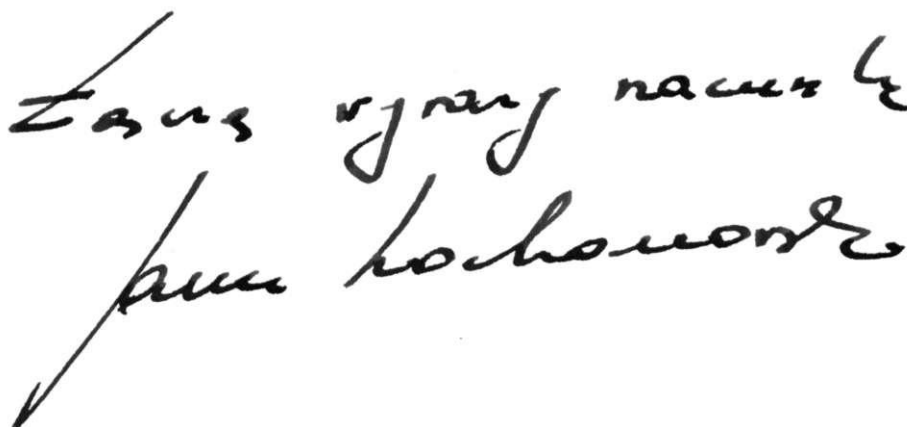 Łączę wyrazy szacunku
Janusz Kochanowski